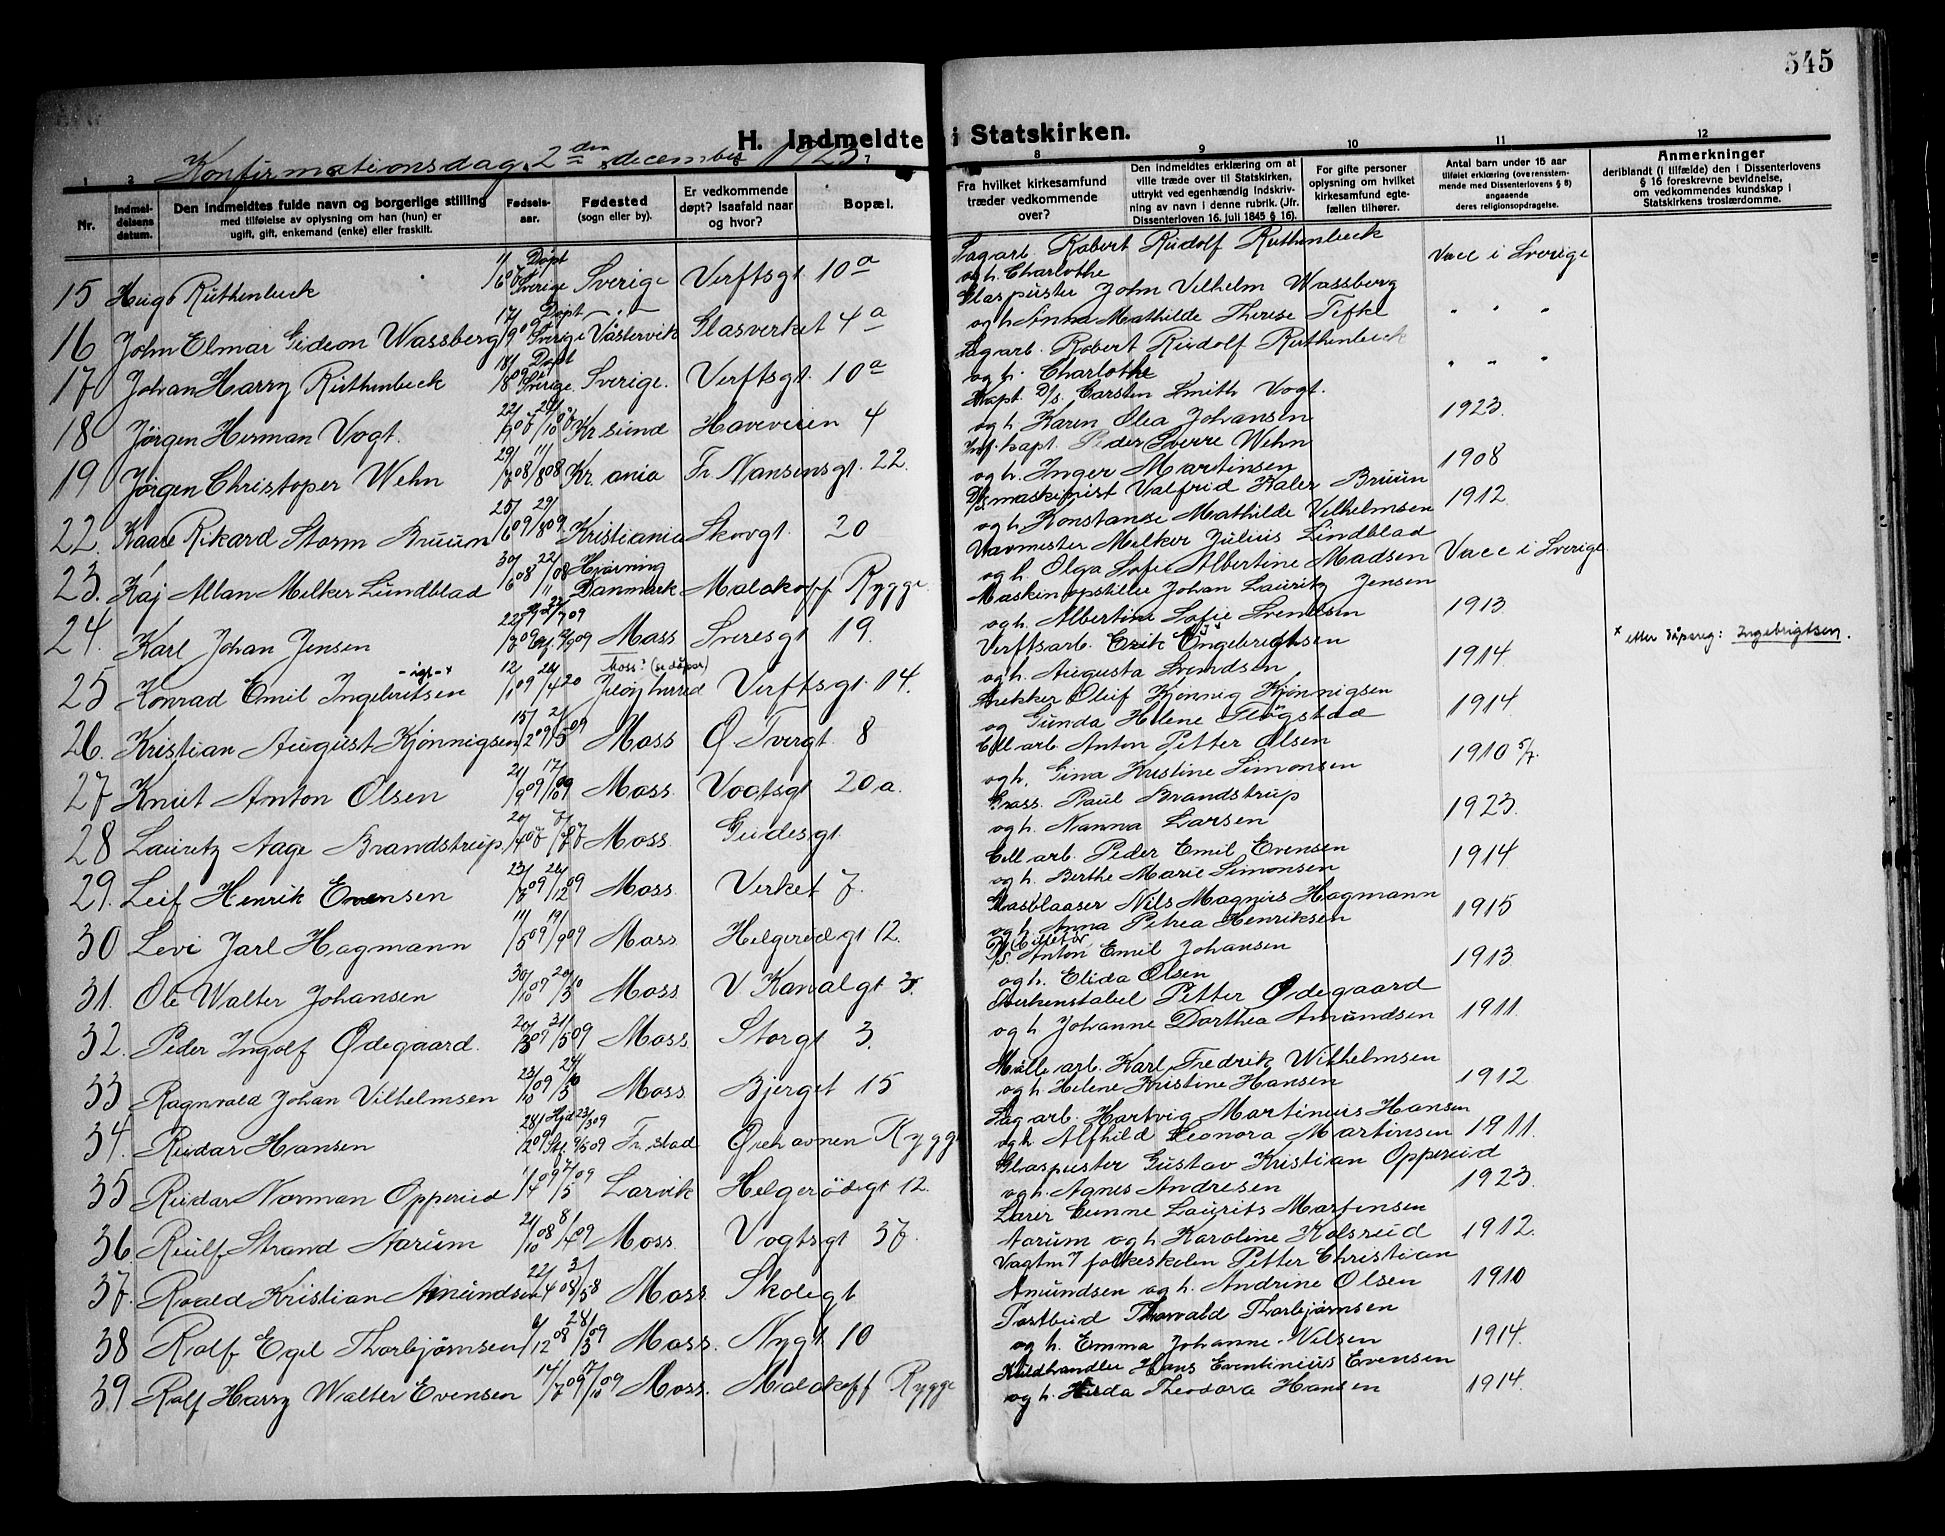 545
H. Indmeldte i Statskirken.
Konfirmationsdag 2den december 1923
1 2 7 8 9 10 11 12
Nr.
Indmeldelsens datum.
Den indmeldtes fulde navn og borgerlige stilling
med tilføielse av oplysning om han (hun) er
ugift, gift, enkemand (enke) eller fraskilt.
Fødselsaar.
Fødested
(sogn eller by).
Er vedkommende
døpt? Isaafald naar
og hvor?
Bopæl.
Fra hvilket kirkesamfund
træder vedkommende
over?
Den indmeldtes erklæring om at
ville træde over til Statskirken,
uttrykt ved egenhændig indskriv-
ning av navn i denne rubrik. (Jfr.
Dissenterloven 16. juli 1845 § 16).
For gifte personer
oplysning om hvilket
kirkesamfund egte-
fællen tilhører.
Antal barn under 15 aar
tilføiet erklæring (overensstem-
mende med Dissenterlovens § 8)
angaaende
deres religionsopdragelse.
Anmerkninger
deriblandt (i tilfælde) den i Dissenterlovens
§ 16 foreskrevne bevidnelse,
om vedkommendes kundskap i
Statskirkens troslærdomme.
15 Hugo Ruthenbeck Døpt i Sverige Sverige Verftsgt. 10a Sagarb. Robert Rudolf Ruthenbeck Vacc i Sverige
og h. Charlothe
16 John Elmar Gideon Wassberg Døpt i Sverige Västervik Glasverket 4a Glaspuster John Vilhelm Wassberg " " "
og h Anna Mathilde Therese Tefke
17 Johan Harry Ruthenbeck Døpt i Sverige Sverige. Verftsgt. 10a Sagarb. Robert Rudolf Ruthenbeck " " "
og h. Charlothe
18 Jørgen Herman Vogt. Kr. sund Haveveien 4 Kapt. D/s. Carsten Smith Vogt. 1923.
og h Karen Olea Johansen
19 Jørgen Christoper Wehn 29/7 08 11/8 08 Kr. ania Fr. Nansensgt. 22. Inf. kapt. Peder Sverre Wehn 1908
og h. Inger Martinsen
22. Kaare Rikard Storm Bruum 25/6 09 29/8 09 Kristiania Skovgt. 20 D/s maskinist Valfrid Kaler Bruun 1912
og h. Konstanse Mathilde Vilhelmsen
23. Kaj Allan Melker Lundblad 30/6 08 22/11 08 Hjørring Danmark Malakoff Rygge Melker Julius Lindblad Vacc i Sverige
og h. Olga Sofie Albertine Madsen
24. Karl Johan Jensen Moss Sveresgt 19. Maskinopstiller Johan Lauritz Jensen 1913
og h. Albertine Sofie Svendsen
25 Konrad Emil Ingebritsen -igt-x 12/1 09 24/4 20 Moss? (se dåpar) Jeløy herred Verftsgt. 14. Verftsarb. Erik Engebrigtsen 1914 x etter dåpsreg: Ingebrigtsen.
og h. Augusta Svendsen
26. Kristian August Kjønnigsen 15/2 09 2/5 09 Moss Ø Tvergt. 8 Snekker Oleif Kjønnig Kjønnigsen 1914
og Gunda Helene Fløgstad
27 Knut Anton Olsen 21/9 09 17/10 09 Moss Vogtsgt 20 a. Cell arb. Anton Petter Olsen 1910 5/7.
og h. Gina Kristine Simonsen
28 Lauritz Aage Brandstrup Moss. Gudesgt. Gross. Paul Brandstrup 1923.
og h. Nanna Larsen
29. Leif Henrik Evensen 26/12 09 Moss Verket 7. Cell arb. Peder Emil Evensen 1914
og h. Berthe Marie Simonsen
30 Levi Jarl Hagmann 11/5 09 19/9 09 Moss Helgerødgt 12. Glasblaaser Nils Magnus Hagmann 1915
og h. Anna Petrea Henriksen
31. Ole Walter Johansen 30/10 09 20/3 10 Moss V. Kanalgt 3. D/s. billetør Anton Emil Johansen 1913
og h. Elida Olsen
32. Peder Ingolf Ødegaard. 20/3 09 31/5 09 Moss. Storgt 3. Overkonstabel Petter Ødegaard 1911.
og h. Johanne Dorthea Amundsen
33 Ragnvald Johan Vilhelmsen 23/10 09 Moss Bjerget 15 Mølle arb. Karl Fredrik Wilhelmsen 1912
og h. Helene Kristine Hansen
34. Reidar Hansen Fr. stad Ørehavnen Rygge Sag arb. Hartvig Martinius Hansen 1911.
og h Alfhild Leonora Martinsen
35 Reidar Norman Opperud 1/4 09 Larvik Helgerødgt 12. Glaspuster Gustav Kristian Opperud 1923.
og h. Agnes Andresen
36. Rulf Strand Aarum 21/10 08 8/4 09 Moss. Vogtsgt 37. Lærer Gunne Laurits Martinsen
Aarum og h Karoline Kolsrud 1912.
37. Roald Kristian Amundsen 22/4 08 3/5 08 Moss Skolegt Vagtm. folkeskolen Petter Christian
Amundsen og h. Andrine Olsen 1910
38 Rolf Egil Thorbjørnsen 6/12 08 28/3 09 Moss. Nygt 10 Postbud Thorvald Thorbjørnsen 1914.
og h. Emma Johanne Nilsen
39. Rolf Harry Walter Evensen 14/7 09 Moss. Malakoff Rygge Kuldhandler Hans Eventinius Evensen 1914.
og h. Theodora Hansen